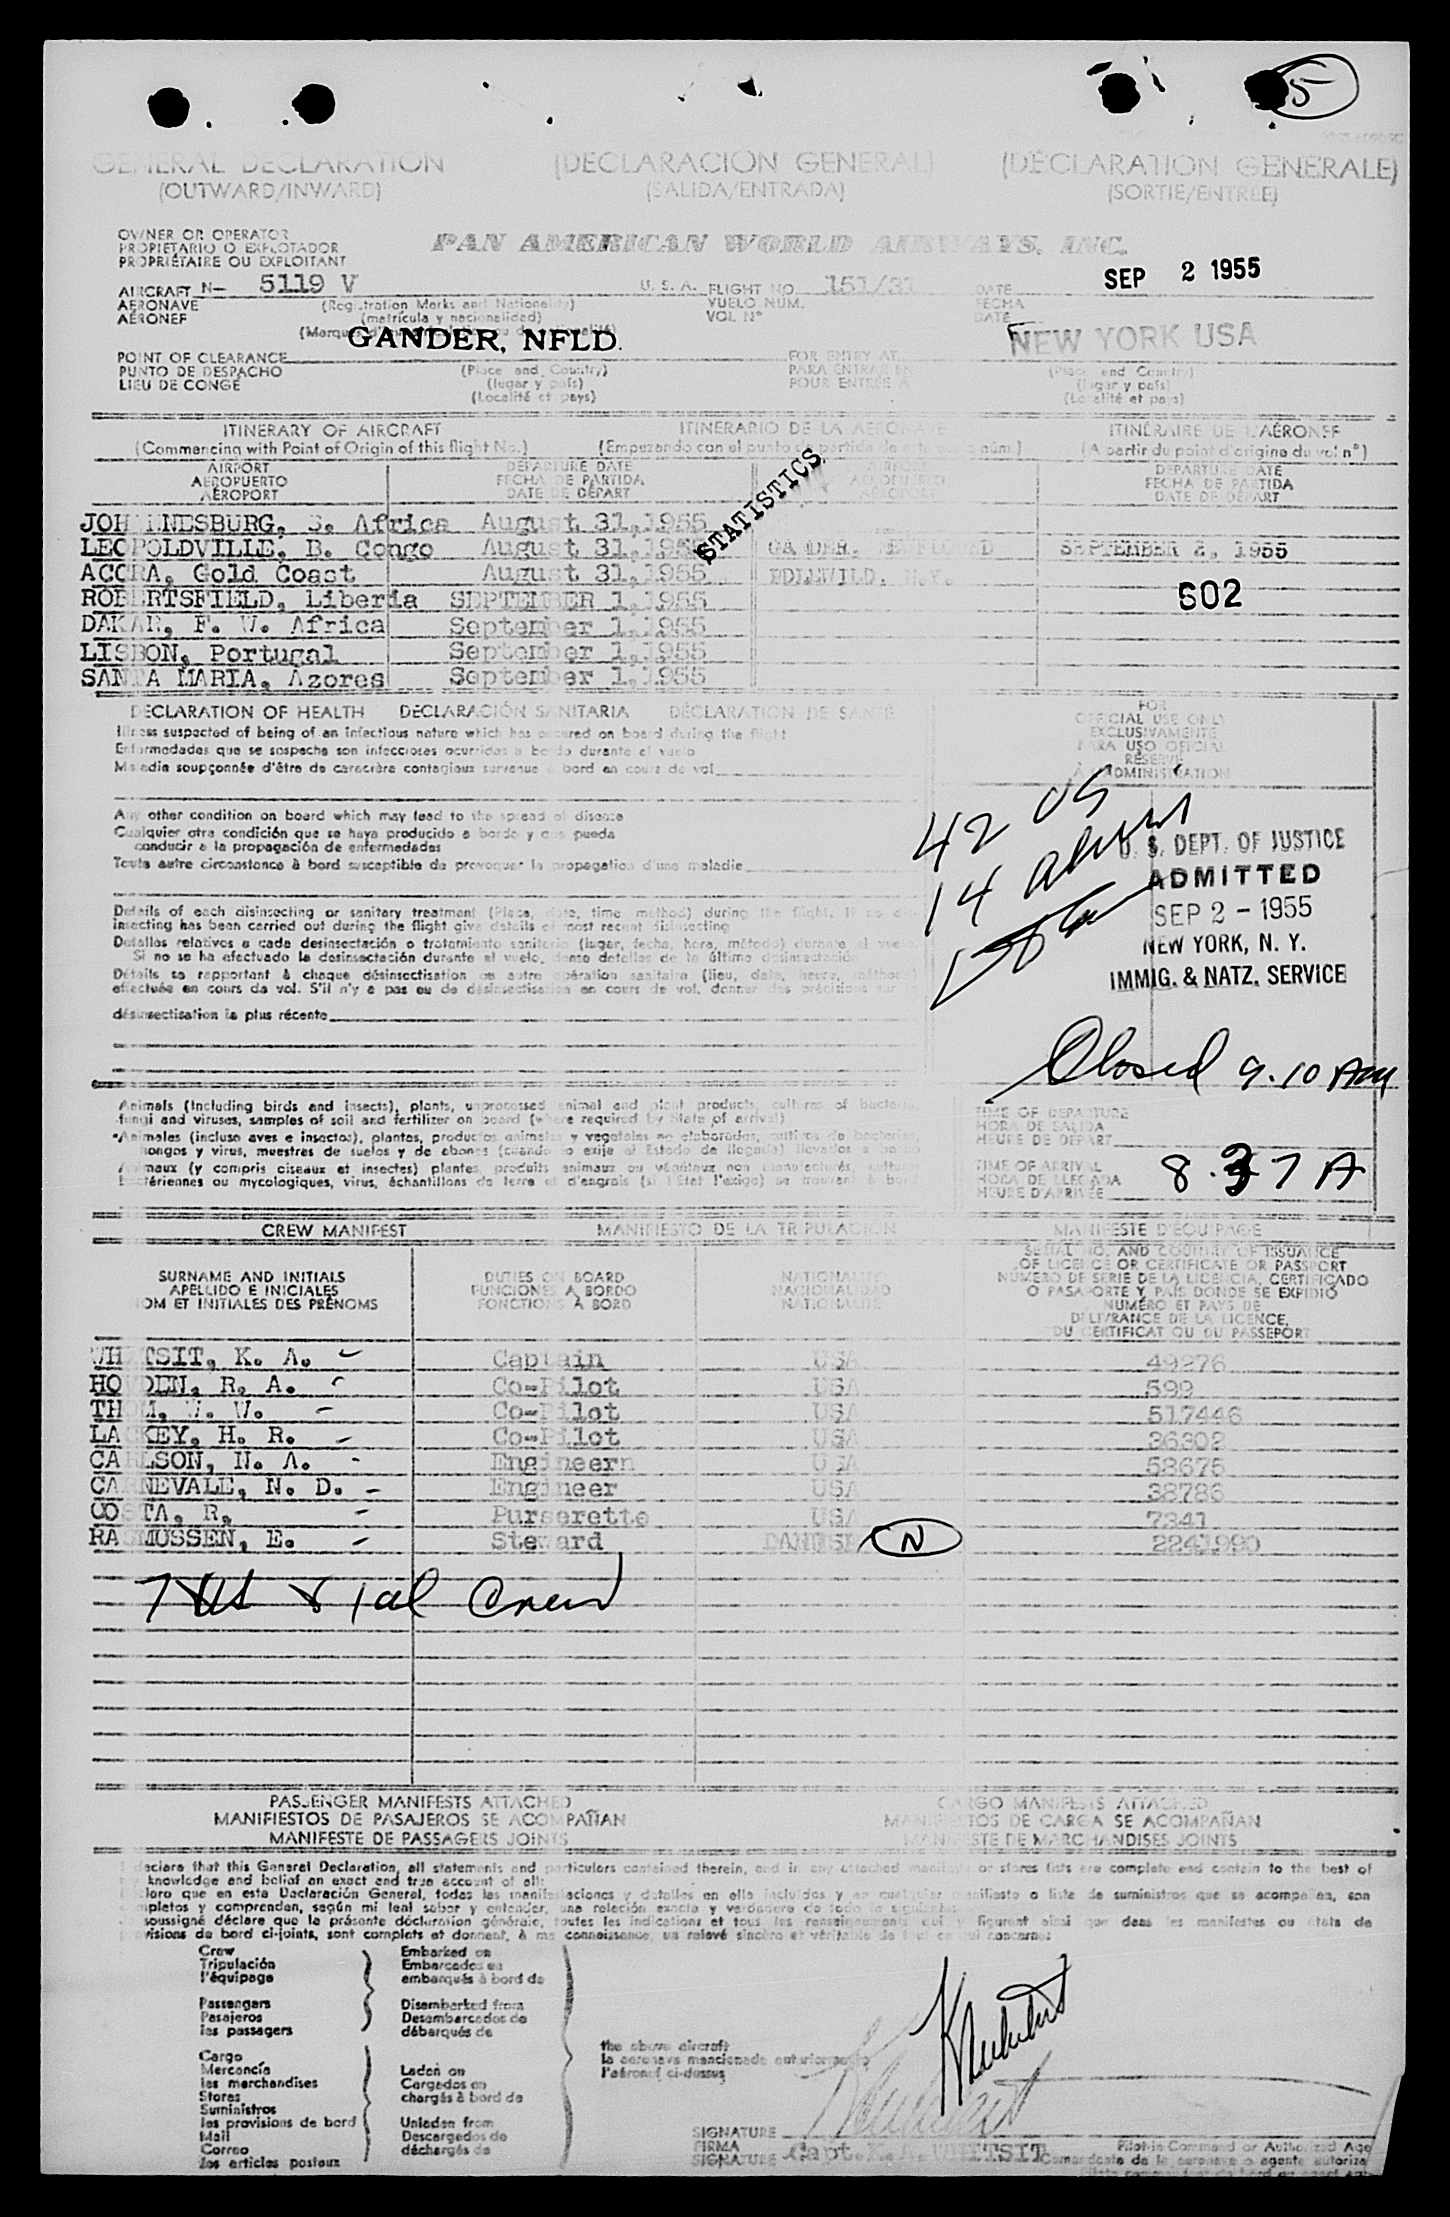 5
GENERAL DECLARATION (DECLARACIÓN GENERAL) (DÉCLARATION GÉNÉRALE)
(OUTWARD/INWARD) (SALIDA/ENTRADA) (SORTIE/ENTRÉE)
OWNER OR OPERATOR
PROPIETARIO O EXPLOTADOR PAN AMERICAN WORLD AIRWAYS, INC.
PROPRIÉTAIRE OU EXPLOITANT
SEP 2 1955
AIRCRAFT N- 5119 V U. S. A. FLIGHT NO. 151/31 DATE
AERONAVE (Registration Marks and Nationality) VUELO NUM. FECHA
AÉRONEF (matrícula y nacionalidad) VOL N° DATE
GANDER, NFLD. NEW YORK USA
POINT OF CLEARANCE FOR ENTRY AT
PUNTO DE DESPACHO (Place and Country) PARA ENTRAR EN (Place and Country)
LIEU DE CONGÉ (lugar y país) POUR ENTRÉE A (lugar y país)
(Localité et pays) (Localité et pays)
ITINERARY OF AIRCRAFT ITINERARIO DE LA AERONAVE ITINÉRAIRE DE L'AÉRONEF
(Commencing with Point of Origin of this flight No.) (Empezando con el punto de partida núm.) (A partir du point d'origine du vol n°)
AIRPORT DEPARTURE DATE DEPARTURE DATE
AEROPUERTO FECHA DE PARTIDA FECHA DE PARTIDA
AÉROPORT DATE DE DÉPART DATE DE DÉPART
STATISTICS
JOHANNESBURG, S. Africa August 31, 1955
LEOPOLDVILLE, B. Congo August 31, 1955 GANDER, SEPTEMBER 2, 1955
ACCRA, Gold Coast August 31, 1955 IDLEWILD, N.Y.
ROBERTSFIELD, Liberia SEPTEMBER 1, 1955 602
DAKAR, F. W. Africa September 1, 1955
LISBON, Portugal September 1, 1955
SANTA MARIA, Azores September 1, 1955
DECLARATION OF HEALTH DECLARACIÓN SANITARIA DÉCLARATION DE SANTÉ
FOR
OFFICIAL USE ONLY
EXCLUSIVAMENTE
PARA USO OFICIAL
RÉSERVÉ
À L'ADMINISTRATION
Illness suspected of being of an infectious nature which has occured on board during the flight
Enfermedades que se sospecha son infecciosas ocurridas a bordo durante el vuelo
Maladie soupçonnée d'être de caractère contagieux survenue à bord en cours de vol
Any other condition on board which may lead to the spread of disease
Cualquier otra condición que se haya producido a bordo y que pueda
conducir a la propagación de enfermedades
Toute autre circonstance à bord susceptible de provoquer la propagation d'une maladie
42 US
14 aliens
U. S. DEPT. OF JUSTICE
ADMITTED
SEP 2 - 1955
NEW YORK, N. Y.
IMMIG. & NATZ. SERVICE
Details of each disinsecting or sanitary treatment (Place, date, time method) during the flight. If no dis-
insecting has been carried out during the flight give details of most recent disinsecting
Detalles relativos a cada desinsectación o tratamiento sanitario (lugar, fecha, hora, método) durante el vuelo.
Si no se ha efectuado la desinsectación durante el vuelo, dense detalles de la última desinsectación
Détails se rapportant à chaque désinsectisation ou autre opération sanitaire (lieu, date, heure, méthode)
effectuée en cours de vol. S'il n'y a pas eu de désinsectisation en cours de vol, donner des précisions sur la
désinsectisation la plus récente
Closed 9.10 AM
Animals (Including birds and insects), plants, unprocessed animal and plant products, cultures of bacteria,
fungi and viruses, samples of soil and fertilizer on board (where required by State of arrival)
Animales (incluso aves e insectos), plantas, productos animales y vegetales no elaborados, cultivos de bacterias
hongos y virus, muestras de suelos y de abonos (cuando lo exije el Estado de llegada) llevados a bordo
Animaux (y compris oiseaux et insectes) plantes, produits animaux ou végétaux non manufacturés, cultures
bactériennes ou mycologiques, virus, échantillons de terre et d'engrais (si l'Etat l'exige) se trouvant à bord
TIME OF DEPARTURE
HORA DE SALIDA
HEURE DE DÉPART
TIME OF ARRIVAL
HORA DE LLEGADA 8.37 A
HEURE D'ARRIVÉE
CREW MANIFEST MANIFIESTO DE LA TRIPULACIÓN MANIFESTE D'ÉQUIPAGE
SURNAME AND INITIALS DUTIES ON BOARD NATIONALITY
APELLIDO E INICIALES FUNCIONES A BORDO NACIONALIDAD
NOM ET INITIALES DES PRÉNOMS FONCTIONS À BORD NATIONALITÉ
SERIAL NO. AND COUNTRY OF ISSUANCE
OF LICENCE OR CERTIFICATE OR PASSPORT
NÚMERO DE SERIE DE LA LICENCIA, CERTIFICADO
O PASAPORTE Y PAÍS DONDE SE EXPIDIÓ
NUMÉRO ET PAYS DE
DÉLIVRANCE DE LA LICENCE,
DU CERTIFICAT OU DU PASSEPORT
WHITSIT, K. A. Captain USA 49276
HOWDEN, R. A. Co-Pilot USA 599
THOM, W. W. Co-Pilot USA 517446
LACKEY, H. R. Co-Pilot USA 36302
CARLSON, N. A. Engineer USA 58675
CARNEVALE, N. D. Engineer USA 38786
COSTA, R. Purserette USA 7341
RASMUSSEN, E. Steward DANISH N 2241990
7 US & 1 al Crew
PASSENGER MANIFESTS ATTACHED CARGO MANIFESTS ATTACHED
MANIFIESTOS DE PASAJEROS SE ACOMPAÑAN MANIFIESTOS DE CARGA SE ACOMPAÑAN
MANIFESTE DE PASSAGERS JOINTS MANIFESTE DE MARCHANDISES JOINTS
I declare that this General Declaration, all statements and particulars contained therein, and in any attached manifests or stores lists are complete and contain to the best of
my knowledge and belief an exact and true account of all:
Declaro que en esta Declaración General, todas las manifestaciones y detalles en ella incluidos y en cualquier manifiesto o lista de suministros que se acompañan, son
completos y comprenden, según mi leal saber y entender, una relación exacta y verdadera de todo lo siguiente:
Je soussigné déclare que la présente déclaration générale, toutes les indications et tous les renseignements qui y figurent ainsi que dans les manifestes ou états de
provisions de bord ci-joints, sont complets et donnent, à ma connaissance, un relevé sincère et véritable de tout ce qui concerne:
Crew Embarked on
Tripulación Embarcados en
l'équipage embarqués à bord de
Passengers Disembarked from
Pasajeros Desembarcados de
les passagers débarqués de
the above aircraft
la aeronave mencionada anteriormente
l'aéronef ci-dessus
Cargo
Mercancía Laden on
les marchandises Cargados en
Stores chargés à bord de
Suministros
les provisions de bord Unladen from
Mail Descargados de
Correo déchargés de
les articles postaux
K A Whitsit
SIGNATURE
FIRMA Capt. K. A. WHITSIT Pilot-in Command or Authorized Age
SIGNATURE Comandante de la aeronave o agente autoriza